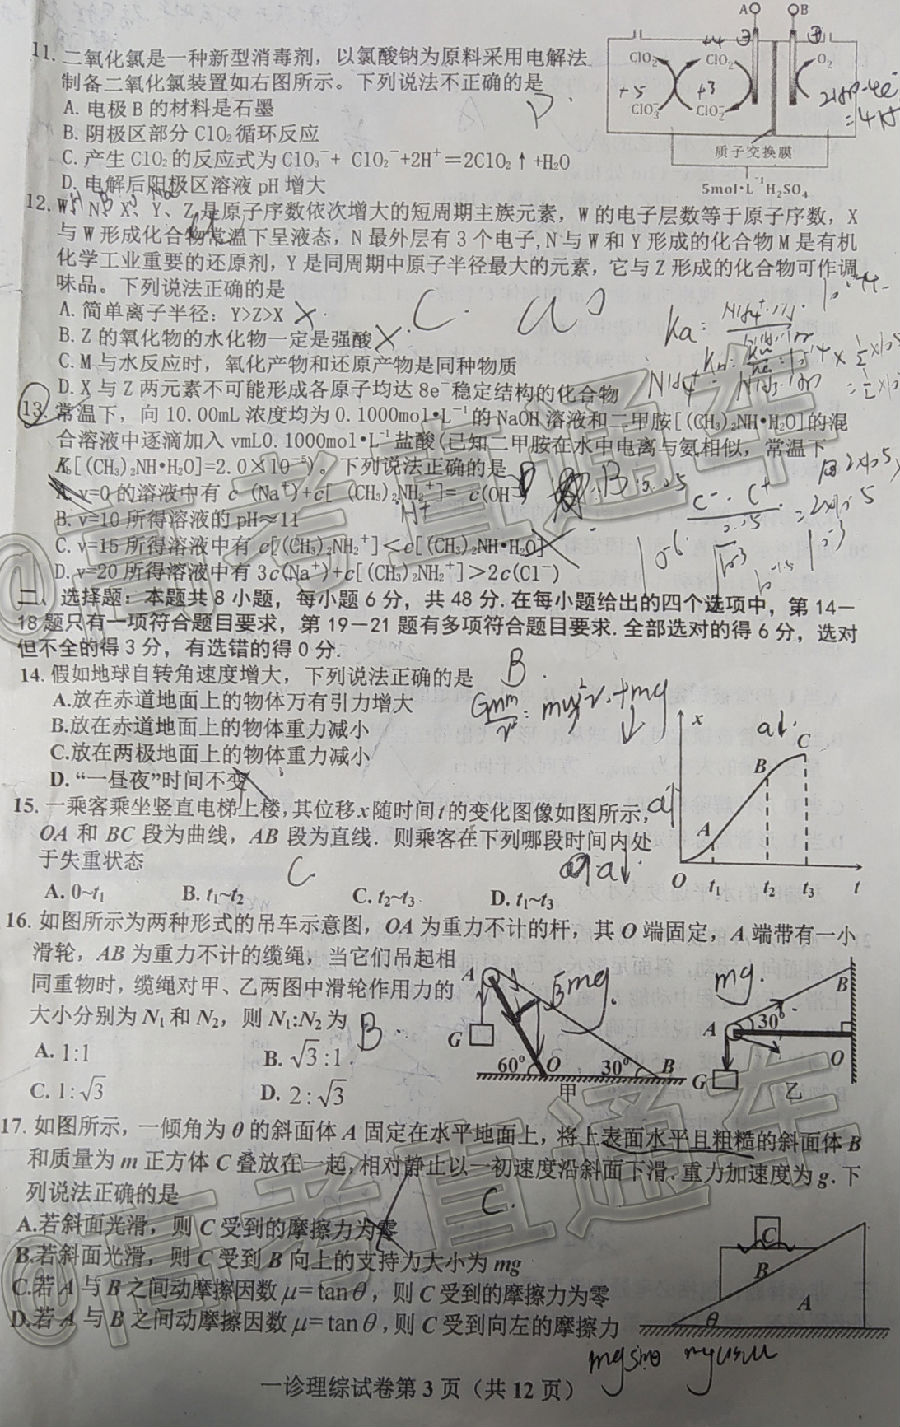 11. 二氧化氯是一种新型消毒剂，以氯酸钠为原料采用电解法
制备二氧化氯装置如右图所示。下列说法不正确的是
A. 电极 B 的材料是石墨
B. 阴极区部分 ClO₂ 循环反应
C. 产生 ClO₂ 的反应式为 ClO₃⁻+ ClO₂⁻+2H⁺＝2ClO₂↑+H₂O
D. 电解后阳极区溶液 pH 增大
A
B
ClO₂ ClO₂ O₂
+5 +3
ClO₃⁻ ClO₂⁻
质子交换膜
5mol•L⁻¹H₂SO₄
D
12. W、N、X、Y、Z 是原子序数依次增大的短周期主族元素，W 的电子层数等于原子序数，X
与 W 形成化合物常温下呈液态，N 最外层有 3 个电子，N 与 W 和 Y 形成的化合物 M 是有机
化学工业重要的还原剂，Y 是同周期中原子半径最大的元素，它与 Z 形成的化合物可作调
味品。下列说法正确的是
A. 简单离子半径：Y>Z>X
B. Z 的氧化物的水化物一定是强酸
C. M 与水反应时，氧化产物和还原产物是同种物质
D. X 与 Z 两元素不可能形成各原子均达 8e⁻稳定结构的化合物
C
13. 常温下，向 10.00mL 浓度均为 0.1000mol•L⁻¹的 NaOH 溶液和二甲胺[(CH₃)₂NH•H₂O]的混
合溶液中逐滴加入 vmL0.1000mol•L⁻¹盐酸(已知二甲胺在水中电离与氨相似，常温下
K[(CH₃)₂NH•H₂O]=2.0×10⁻⁵)。下列说法正确的是
A. v=0 的溶液中有 c (Na⁺)+c[ (CH₃)₂NH₂⁺]= c(OH⁻
B. v=10 所得溶液的 pH≈11
C. v=15 所得溶液中有 c[(CH₃)₂NH₂⁺]＜c[(CH₃)₂NH•H₂O]
D. v=20 所得溶液中有 3c(Na⁺)+c[(CH₃)₂NH₂⁺]＞2c(Cl⁻)
二、选择题：本题共 8 小题，每小题 6 分，共 48 分.在每小题给出的四个选项中，第 14－
18 题只有一项符合题目要求，第 19－21 题有多项符合题目要求.全部选对的得 6 分，选对
但不全的得 3 分，有选错的得 0 分.
14. 假如地球自转角速度增大，下列说法正确的是
B
A.放在赤道地面上的物体万有引力增大
B.放在赤道地面上的物体重力减小
C.放在两极地面上的物体重力减小
D. “一昼夜”时间不变
15. 一乘客乘坐竖直电梯上楼，其位移 x 随时间 t 的变化图像如图所示，
OA 和 BC 段为曲线，AB 段为直线．则乘客在下列哪段时间内处
于失重状态
C
A. 0~t₁ B. t₁~t₂ C. t₂~t₃ D. t₁~t₃
x
C
B
A
O t₁ t₂ t₃ t
16. 如图所示为两种形式的吊车示意图，OA 为重力不计的杆，其 O 端固定，A 端带有一小
滑轮，AB 为重力不计的缆绳，当它们吊起相
同重物时，缆绳对甲、乙两图中滑轮作用力的
大小分别为 N₁ 和 N₂，则 N₁:N₂ 为
B
A. 1:1 B. √3:1
C. 1:√3 D. 2:√3
A
G
60° O 30° B
甲
mg.
B
A 30°
O
G
乙
17. 如图所示，一倾角为 θ 的斜面体 A 固定在水平地面上，将上表面水平且粗糙的斜面体 B
和质量为 m 正方体 C 叠放在一起，相对静止以一初速度沿斜面下滑．重力加速度为 g．下
列说法正确的是
C.
A.若斜面光滑，则 C 受到的摩擦力为零
B.若斜面光滑，则 C 受到 B 向上的支持力大小为 mg
C.若 A 与 B 之间动摩擦因数 μ=tanθ，则 C 受到的摩擦力为零
D.若 A 与 B 之间动摩擦因数 μ=tanθ，则 C 受到向左的摩擦力
C
B
A
θ
一诊理综试卷第 3 页（共 12 页）
@高考直通车
@高考直通车